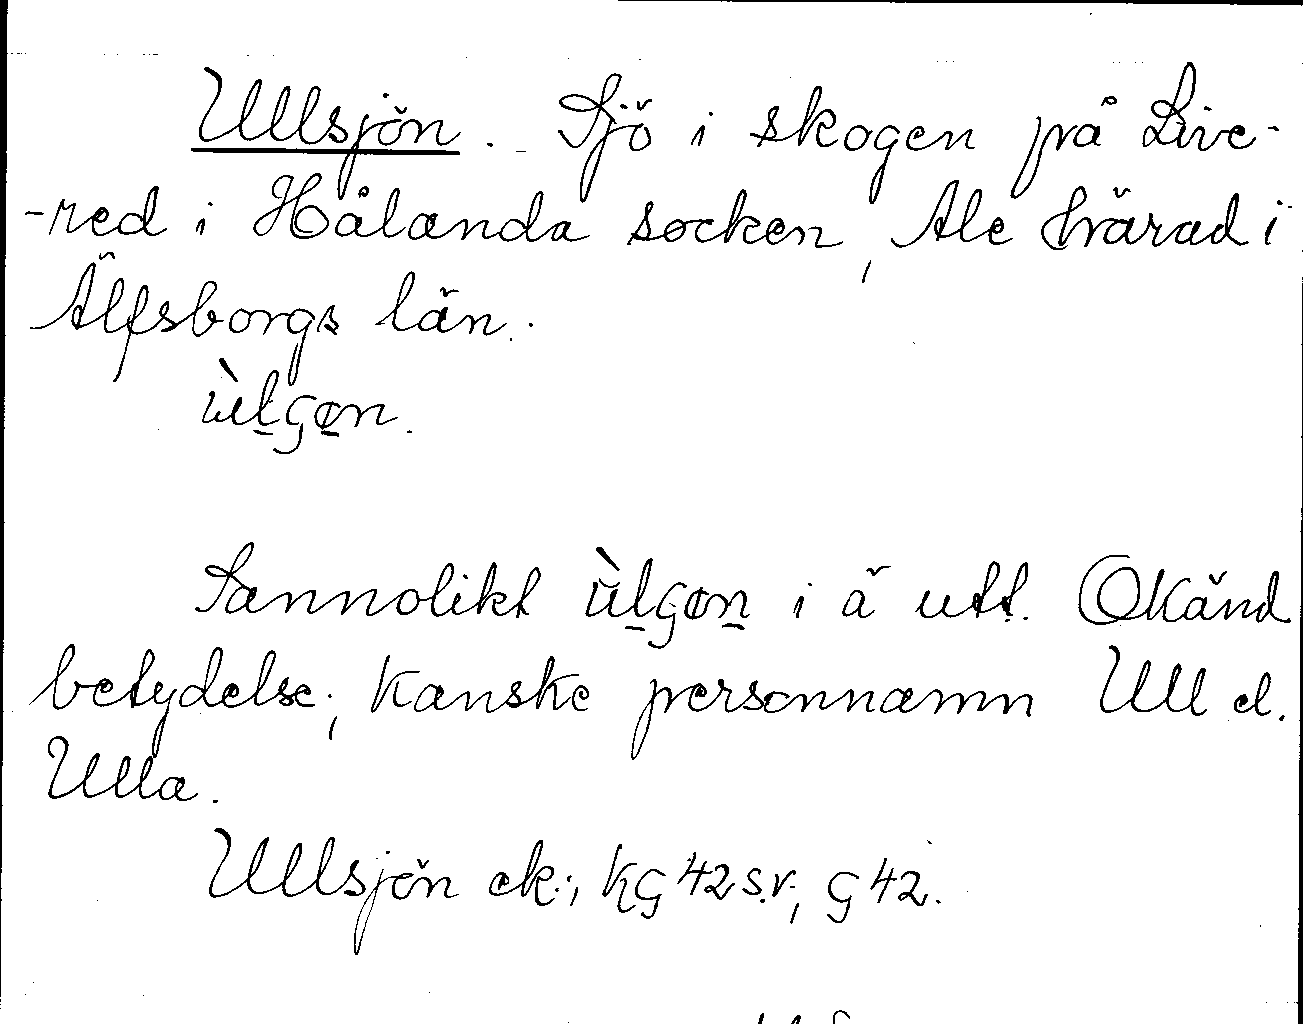 Ullsjön. Sjö i skogen på Live-
-red i Hålanda socken, Ale härad i
Älfsborgs län.
ùlgøn.
Sannolikt ùlgøn i ä utt. Okänd
betydelse; kanske personnamn Ull el.
Ulla.
Ullsjön ek.; KG 42 s.v.; G 42.